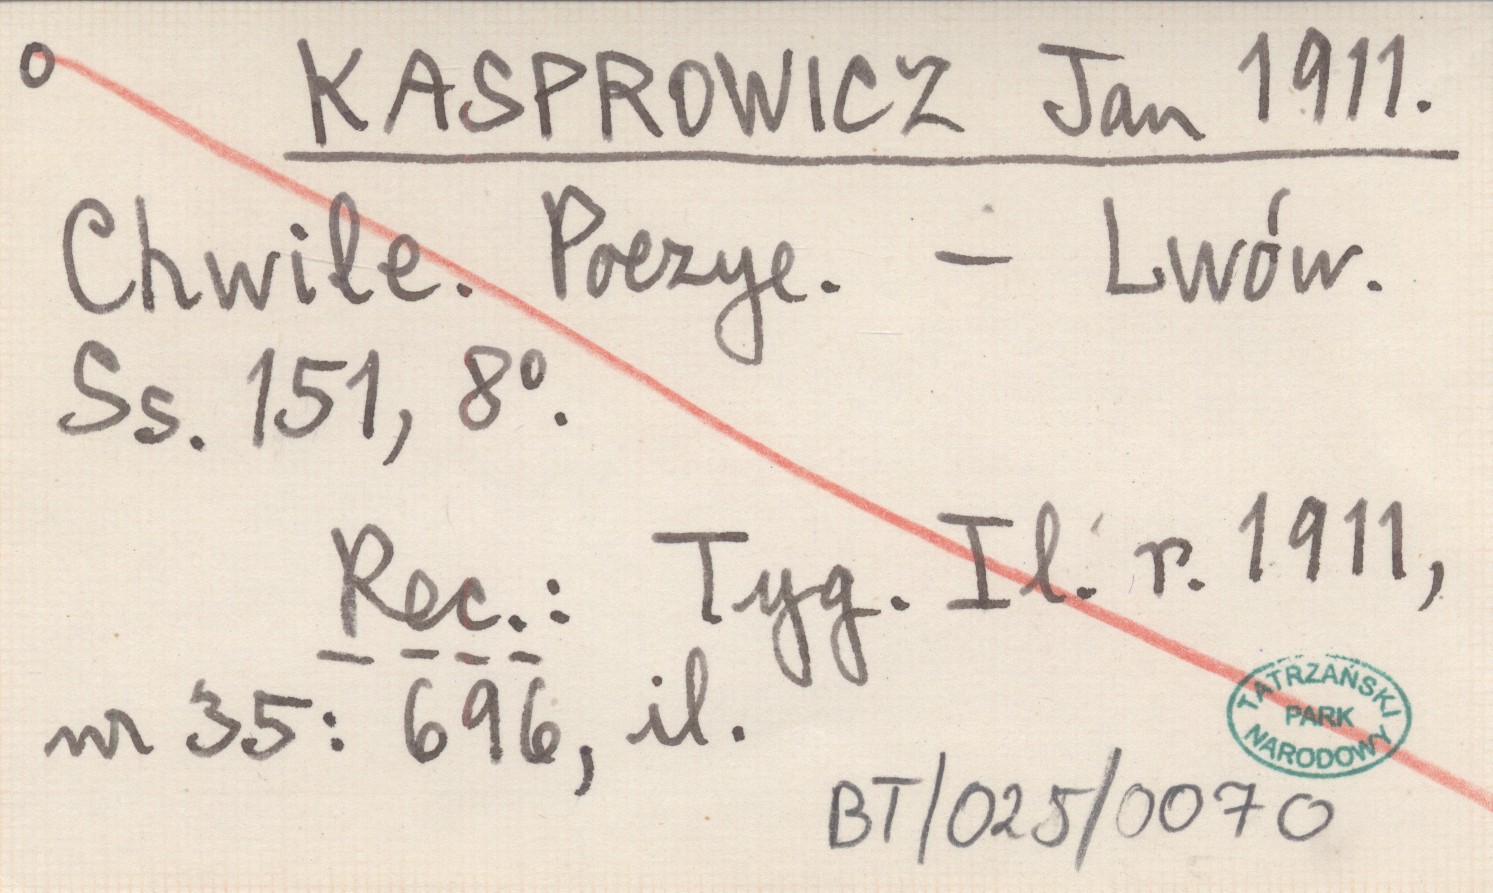 o KASPROWICZ Jan 1911.
Chwile. Poezye. – Lwów.
Ss. 151, 8º.
Rec.: Tyg. Il. r. 1911,
nr 35: 696, il.
TATRZAŃSKI
PARK
NARODOWY
BT/025/0070